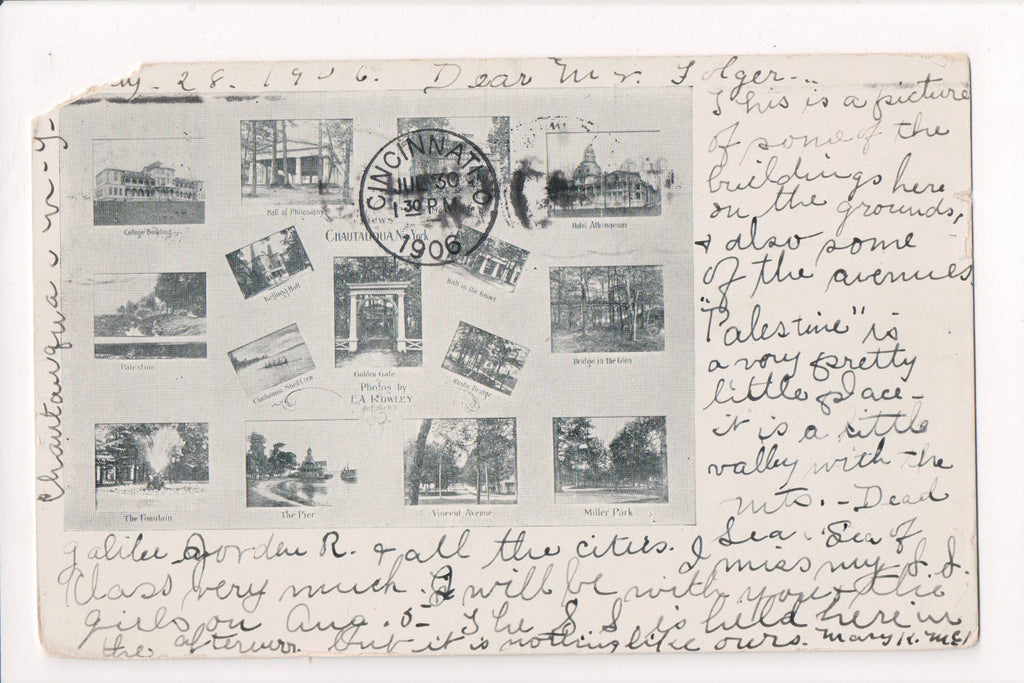 28. 1906. Dear Mr. Folger—
This is a picture
of some of the
buildings here
on the grounds,
& also some
of the avenues.
"Palestine" is
a very pretty
little place—
it is a little
valley with the
mts. - Dead
Sea. Sea of
galilee Jorden R. & all the cities. I miss my S. S.
Class very much. I will be with you & the
girls on Aug. 5- The S S is held here in
the afternoon but it is nothing like ours. Mary K.
Chautauqua N-Y-
CINCINNATI, O.
JUL 30
1 30 P.M.
1906
College Building
Hall of Philosophy
Hotel Athenaeum
Views
CHAUTAUQUA, N. York
Kellogg Hall
Hall in the Grove
Palestine
Golden Gate
Bridge in the Glen
Chautauqua Shell Crew
Photos by
E.A. ROWLEY
Rustic Bridge
The Fountain
The Pier
Vincent Avenue
Miller Park